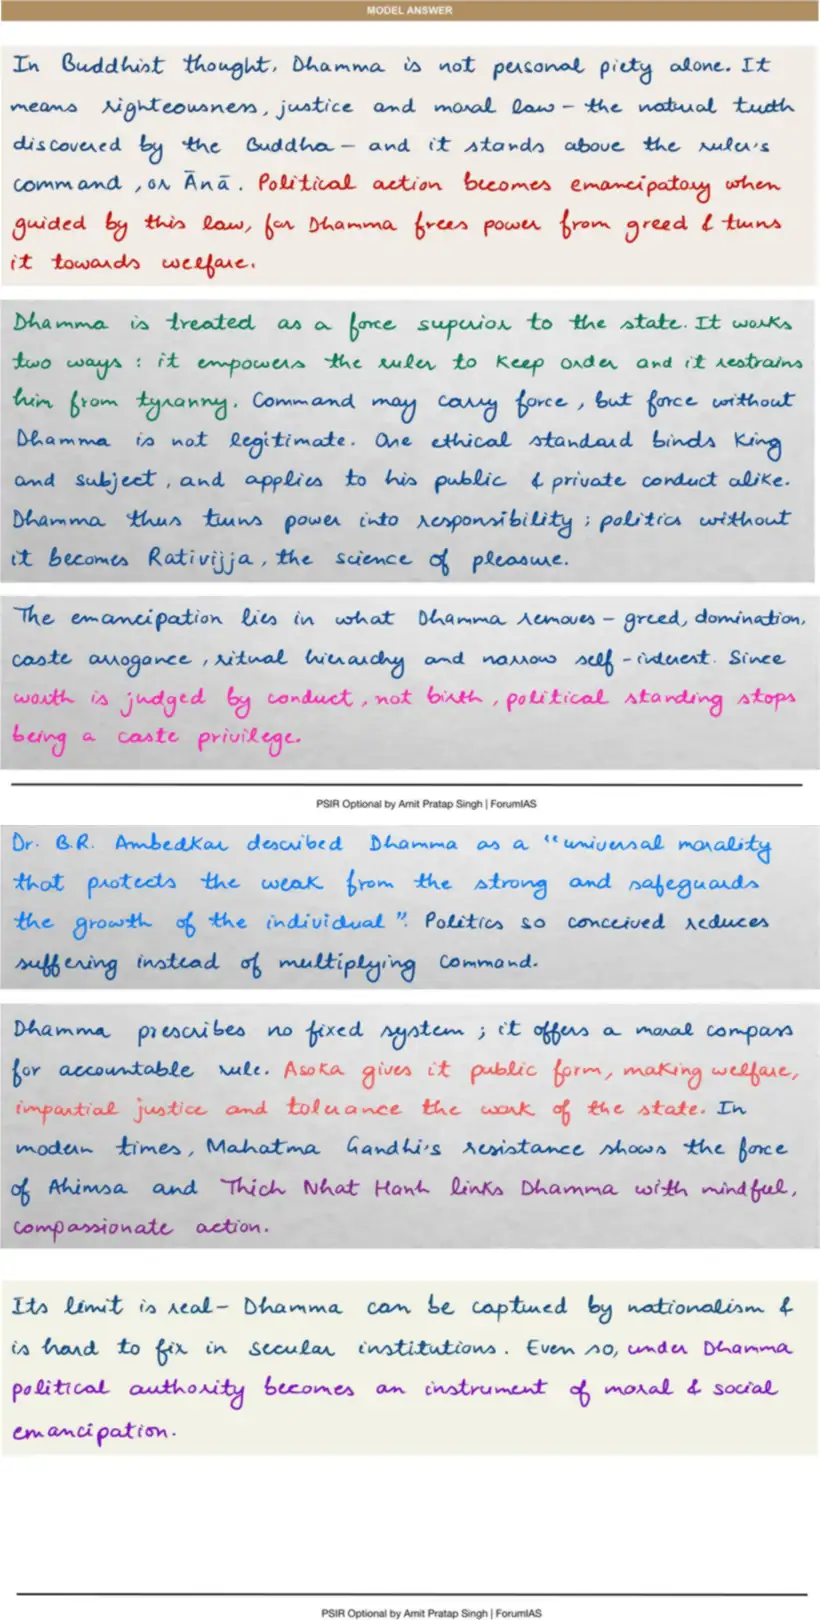 MODEL ANSWER
In Buddhist thought, Dhamma is not personal piety alone. It
means righteousness, justice and moral law – the natural truth
discovered by the Buddha – and it stands above the ruler's
command, or Āṇā. Political action becomes emancipatory when
guided by this law, for Dhamma frees power from greed & turns
it towards welfare.
Dhamma is treated as a force superior to the state. It works
two ways : it empowers the ruler to keep order and it restrains
him from tyranny. Command may carry force, but force without
Dhamma is not legitimate. One ethical standard binds King
and subject, and applies to his public & private conduct alike.
Dhamma thus turns power into responsibility ; politics without
it becomes Rativijja, the science of pleasure.
The emancipation lies in what Dhamma removes – greed, domination,
caste arrogance, ritual hierarchy and narrow self-interest. Since
worth is judged by conduct, not birth, political standing stops
being a caste privilege.
PSIR Optional by Amit Pratap Singh | ForumIAS
Dr. B.R. Ambedkar described Dhamma as a "universal morality
that protects the weak from the strong and safeguards
the growth of the individual". Politics so conceived reduces
suffering instead of multiplying command.
Dhamma prescribes no fixed system ; it offers a moral compass
for accountable rule. Asoka gives it public form, making welfare,
impartial justice and tolerance the work of the state. In
modern times, Mahatma Gandhi's resistance shows the force
of Ahimsa and Thich Nhat Hanh links Dhamma with mindful,
compassionate action.
Its limit is real – Dhamma can be captured by nationalism &
is hard to fix in secular institutions. Even so, under Dhamma
political authority becomes an instrument of moral & social
emancipation.
PSIR Optional by Amit Pratap Singh | ForumIAS